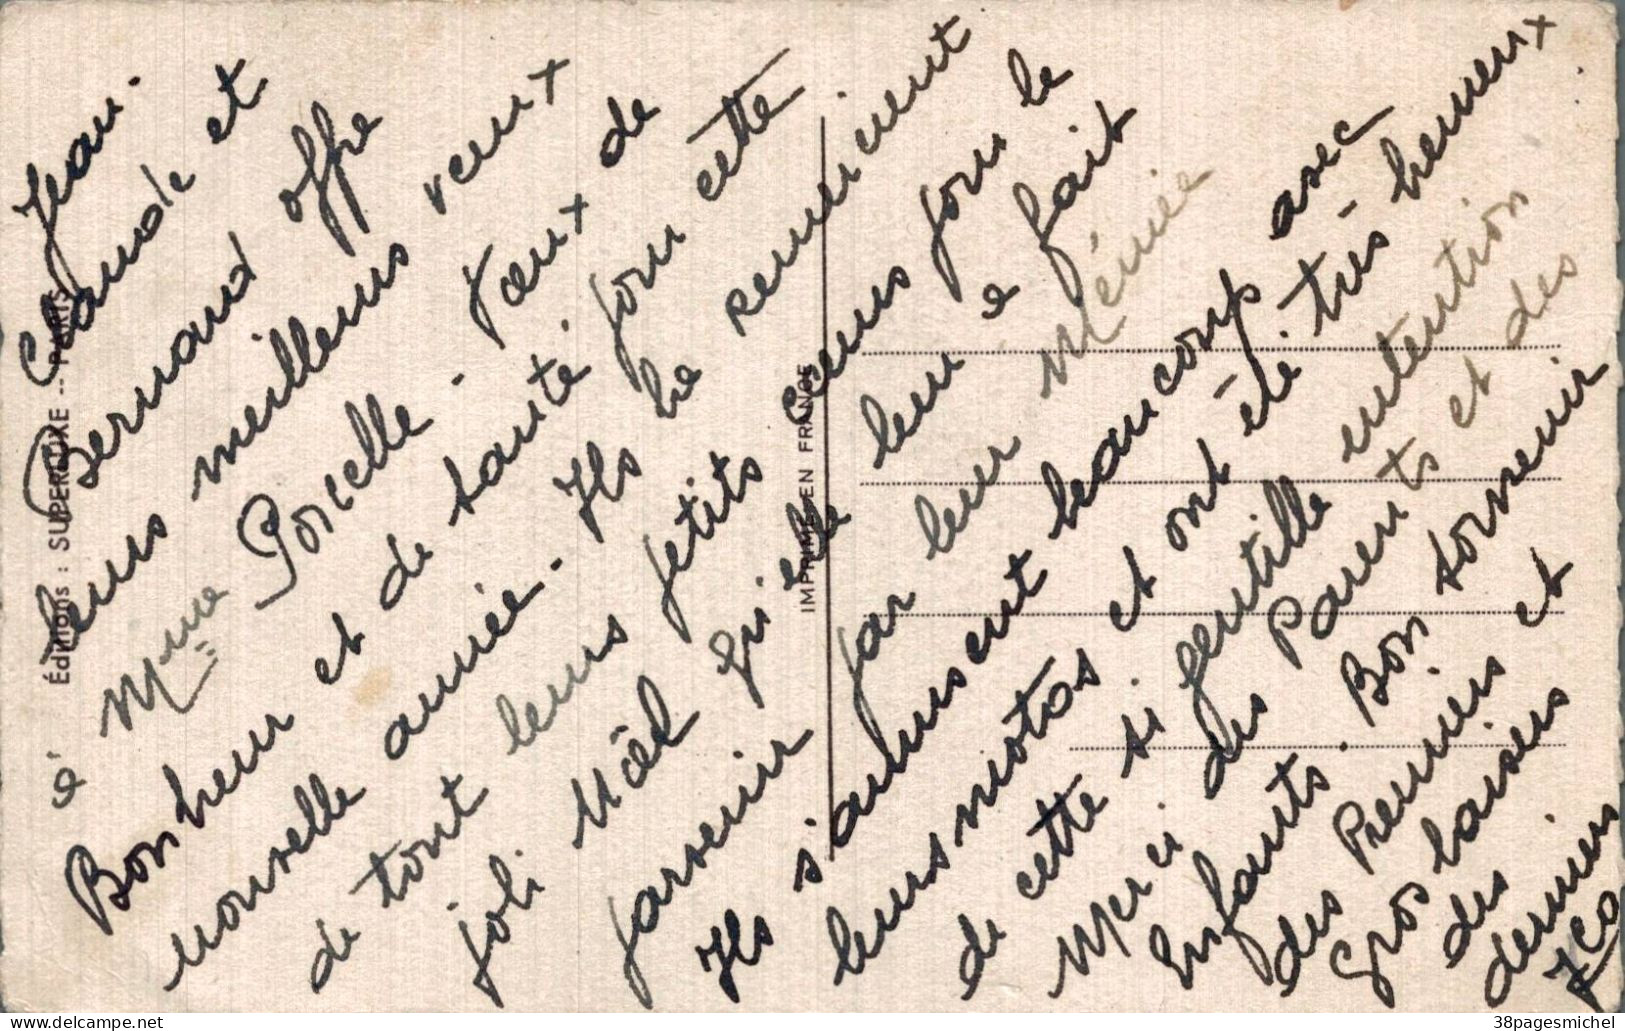 Jean.
Claude et
Bernard offre
leurs meilleurs veux
a' Mme Porcelle. Vœux de
Bonheur et de santé pour cette
nouvelle année. Ils le remercient
de tout leurs petits cœurs pour le
joli Nöel qu'elle leur a fait
parvenir par leur Mémée
Ils s'amusent beaucoup avec
leurs motos et ont été très heureux
de cette si gentille intention
Merci des Parents et des
Enfants. Bon souvenir
des Premiers et
Gros baisers
des
derniers
Éditions : SUPERLUXE -- PARIS
IMPRIMÉ EN FRANCE
38pagesmichel